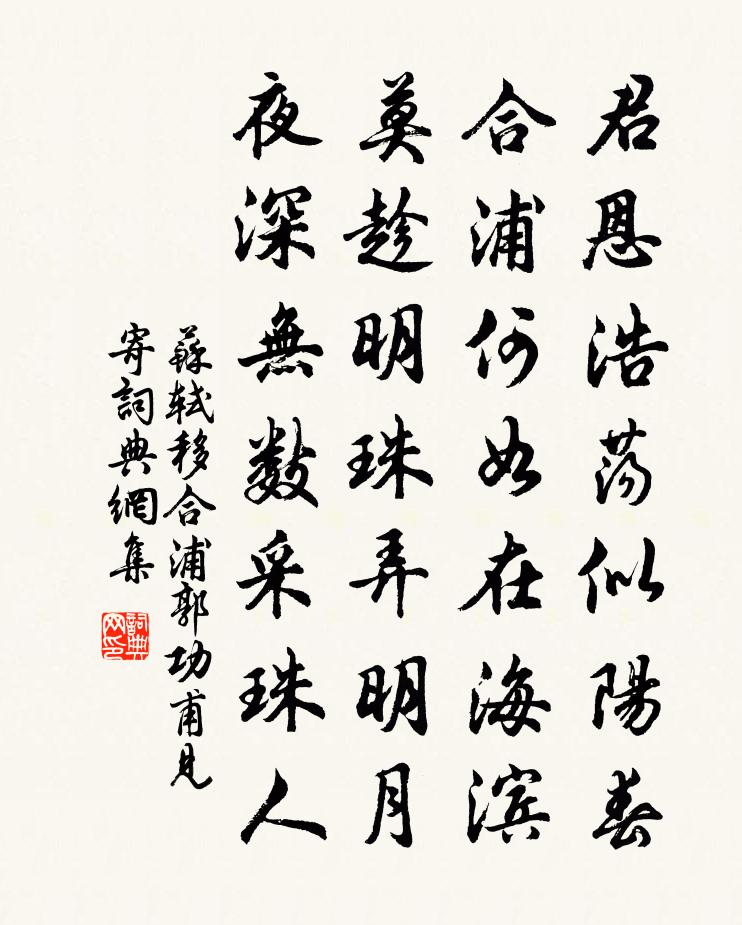 君恩浩荡似陽春
合浦何如在海滨
莫趁明珠弄明月
夜深無数采珠人
蘇轼移合浦郭功甫見
寄詞典網集
詞典网印